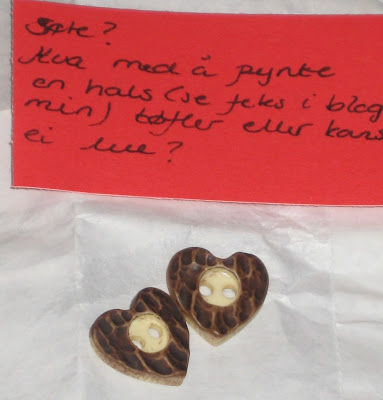 Søte?
Kva med å pynte
en hals (se f.eks i blog
min) tøfler eller kans
ei lue?